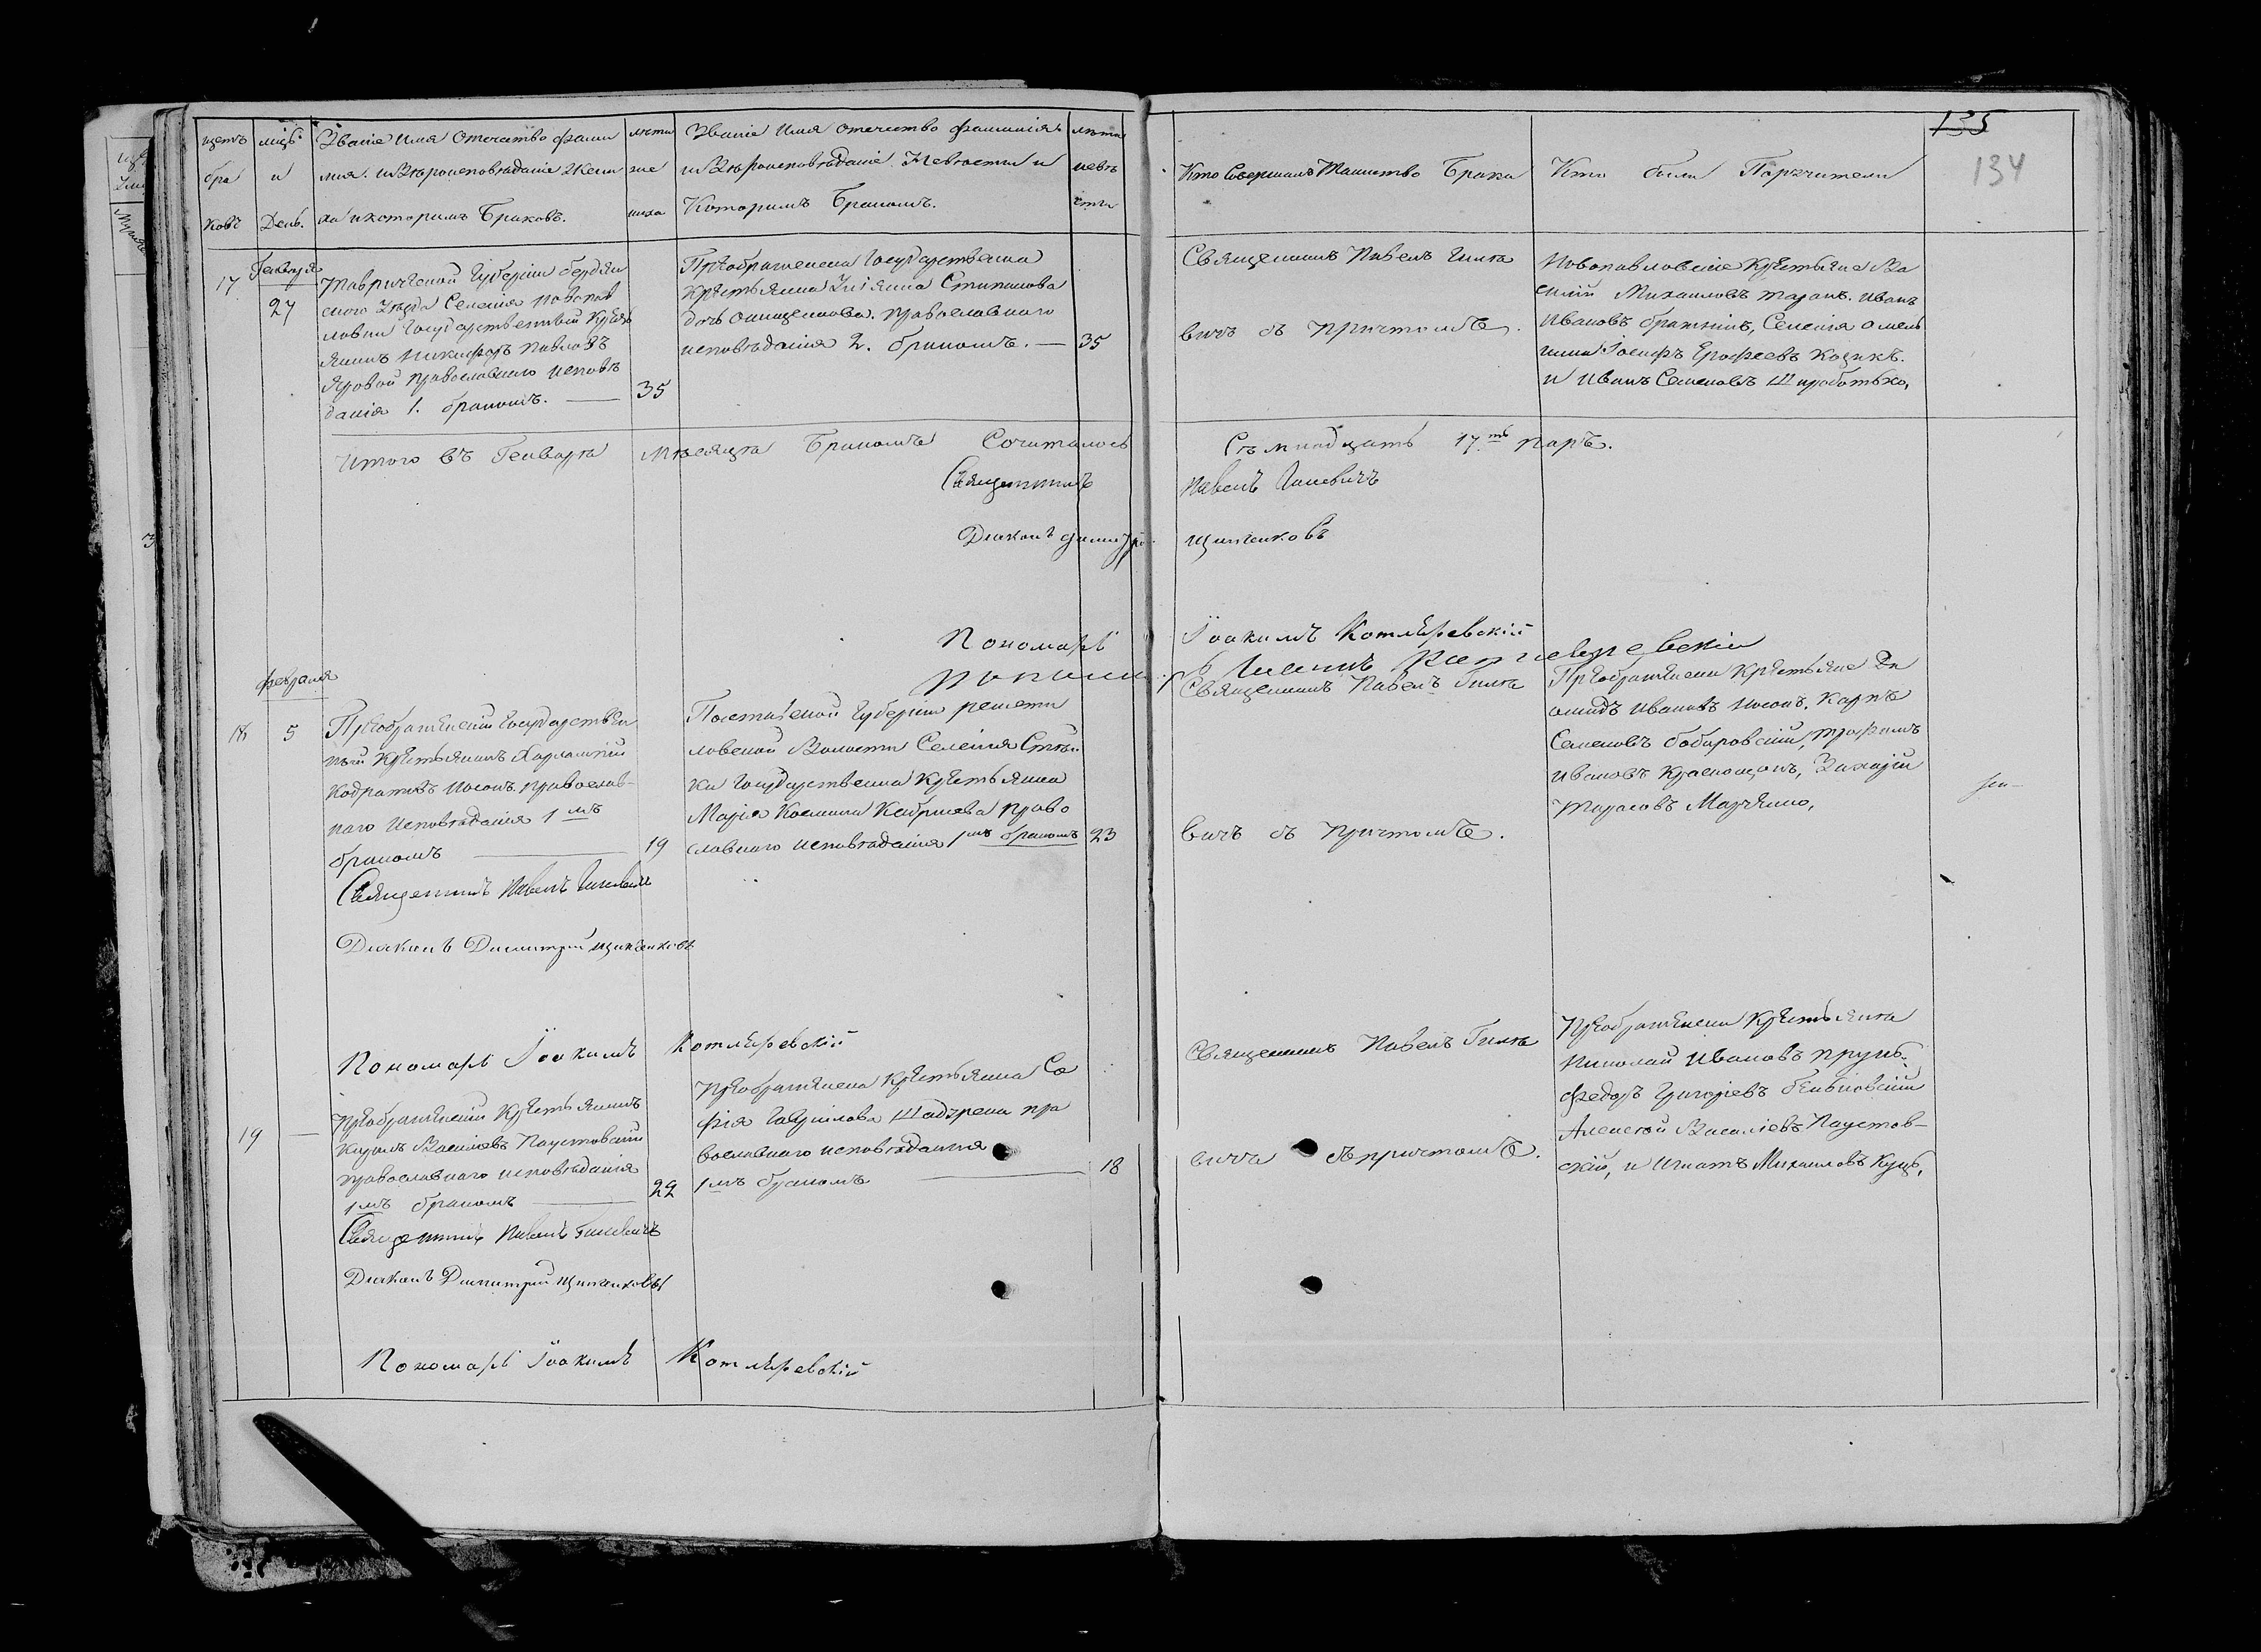 135
134
щетъ бра ковъ
мць и День.
Званіе Имя Отечество фами
лия. и Вѣроисповѣданіе Жени
ха и которимъ Бракомъ.
лета же ниха
Званіе Имя отечество фамилія
и Вѣроисповѣданіе Невести и
Которимъ Бракомъ.
лета невѣ сти
Кто Совершалъ Таинство Брака
Кто били Поручители
17
Генваря
27
Таврической Губерніи бердян
ского Уезда Селенія новопав
ловки Государственній Крест
янинъ Никифоръ Павловъ
Яровой православнаго исповѣ
данія 1. бракомъ.
35
Преображенска Государственна
Крестьянка Степанова
дочь православнаго
исповѣданія 2. бракомъ.
35
Священникъ Павелъ Гинке
вичъ съ Причтомъ.
Новопавловские Крестьяне Ва
силій Михаиловъ таранъ. Иванъ
Ивановъ Селенія Омель
ника Іосифъ Ерофеевъ Коцикъ.
и Иванъ Семеновъ
Итого въ Генваря Месяцѣ Бракомъ Сочиталось Съмнадцать 17ть паръ.
Священникъ Павелъ Гинкевичъ
Диаконъ Димитрій Щитенковъ
Пономарь Іоакимъ Котляревскій
февраля
18
5
Преображенскій Государствен
ный Крестьянинъ Харлампій
Кодратовъ Носонъ. православ-
наго Исповѣданія 1мъ
бракомъ
19
Полтавской Губерніи решети
ловской Волости Селенія
ка Государственна Крестьянка
Марія право
славнаго исповѣданія 1мъ бракомъ
23
Священникъ Павелъ Гинке
вичъ съ Причтомъ.
Преображенски Крестьяне Ди
омидъ Ивановъ Носонъ, Карпъ
Семеновъ Бобировскій, трофимъ
Ивановъ Захарій
Тарасовъ
Священникъ Павелъ Гинкевичъ
Диаконъ Димитрій Щитенковъ
Пономарь Іоакимъ Котляревскій
19
Преображенскій Крестьянинъ
Василіевъ Паустовскій
православнаго исповѣданія
1мъ бракомъ
22
Преображенска Крестьянка Со
фія Гаврилова пра
вославнаго исповѣданія
1мъ бракомъ
18
Священникъ Павелъ Гинке
вичъ съ причтомъ.
Преображенски Крестьяне
Николай Ивановъ
Федоръ Григоріевъ
Алексей Василіевъ Паустов-
скій, и Игнатъ Михаиловъ Куцъ,
Священникъ Павелъ Гинкевичъ
Диаконъ Димитрій Щитенковъ
Пономарь Іоакимъ Котляревскій